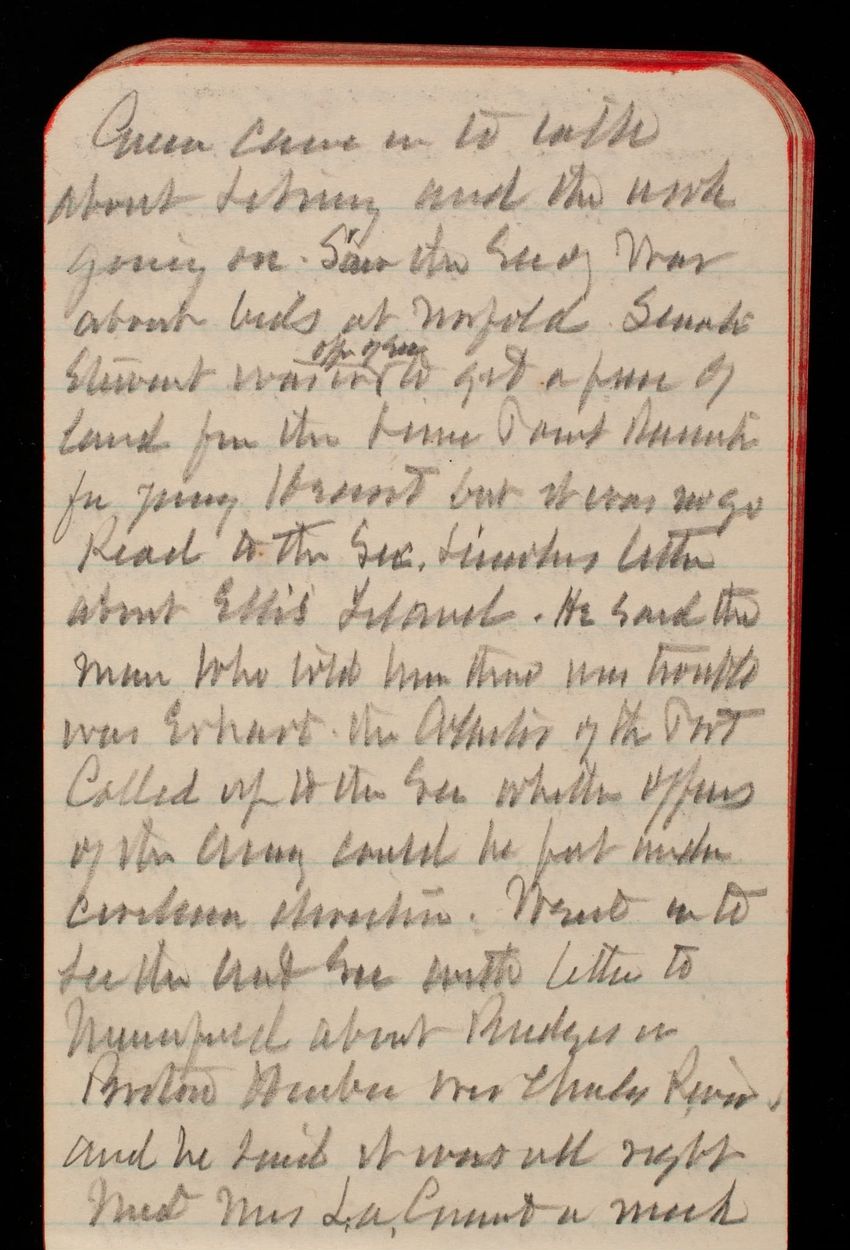 Green came in to talk
about Sebring and the work
going on. Saw the Secy War
about bids at Norfolk Senator
Stewart was in off of Sec to get a piece of
land for the Lime Point
for but it was no go
Read to the Sec. letter
about Ellis Island. He said the
man who told him there was trouble
was Erhart the Collector of the Port
Called up to the Sec whether officers
of the Army could be put under
civilian direction. Went in to
see the Asst Sec with letter to
about Bridges in
Boston Harbor over Charles River
and he said it was all right
Met Mrs